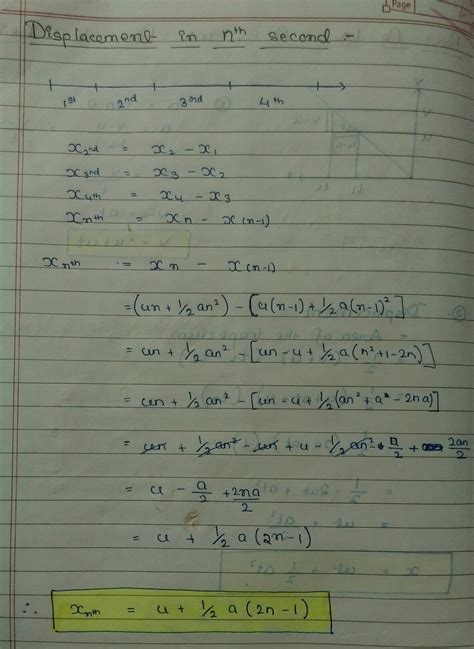 Page
Displacement in nth second :-
1st 2nd 3rd 4th
x2nd = x2 - x1
x3rd = x3 - x2
x4th = x4 - x3
xnth = xn - x(n-1)
xnth = xn - x(n-1)
= (un + 1/2 an²) - [u(n-1) + 1/2 a(n-1)²]
= un + 1/2 an² - [un - u + 1/2 a(n²+1-2n)]
= un + 1/2 an² - [un - u + 1/2 (an² + a - 2na)]
= un + 1/2 an² - un + u - 1/2 an² - a/2 + 2an/2
= u - a/2 + 2na/2
= u + 1/2 a (2n-1)
∴ xnth = u + 1/2 a (2n-1)